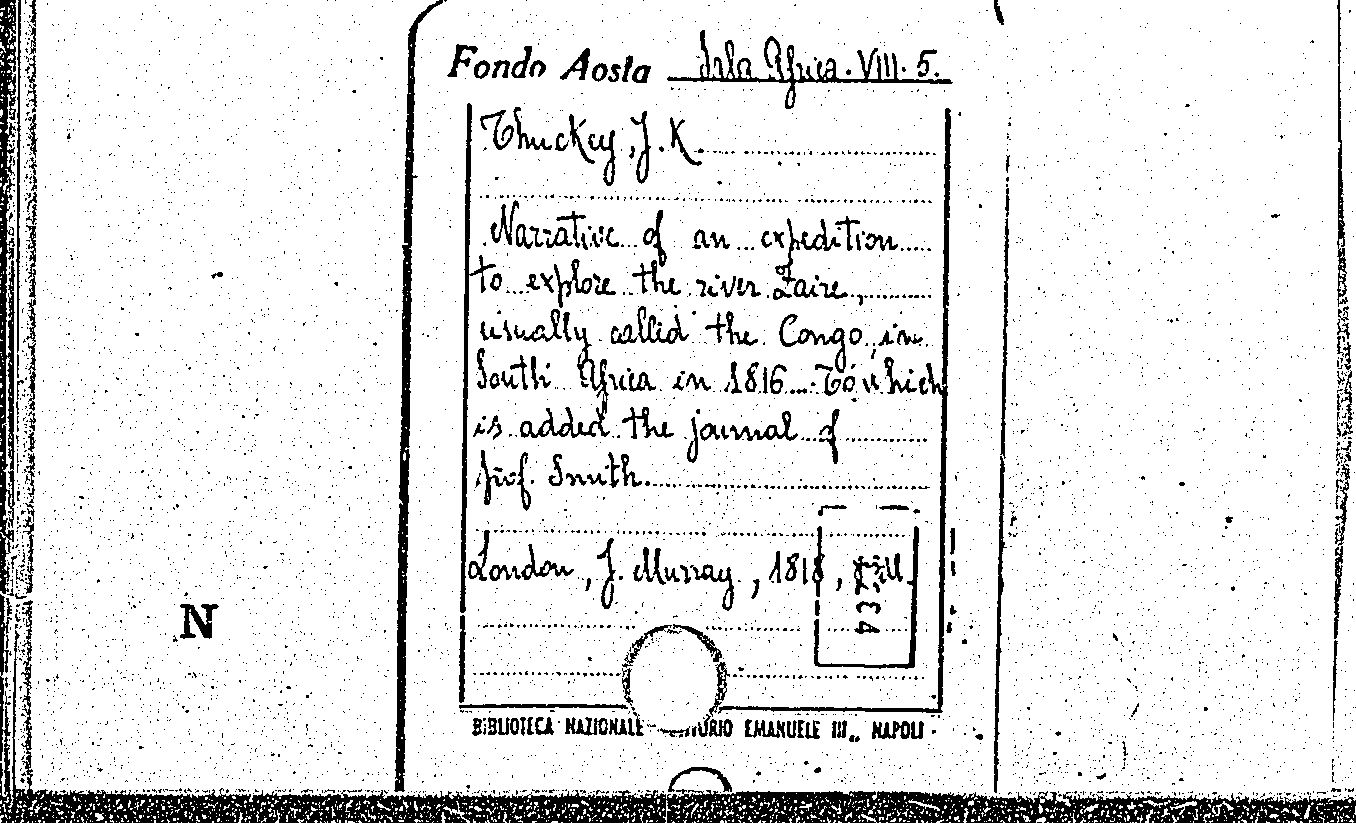 Fondo Aosta Sala Africa. VIII. 5.
Thuckey, J. K.
Narrative of an expedition
to explore the river Zaire,
usually called the Congo, in
South Africa in 1816. To which
is added the journal of
prof. Smith.
London, J. Murray, 1818, ill.
N
BIBLIOTECA NAZIONALE EMANUELE III„ NAPOLI